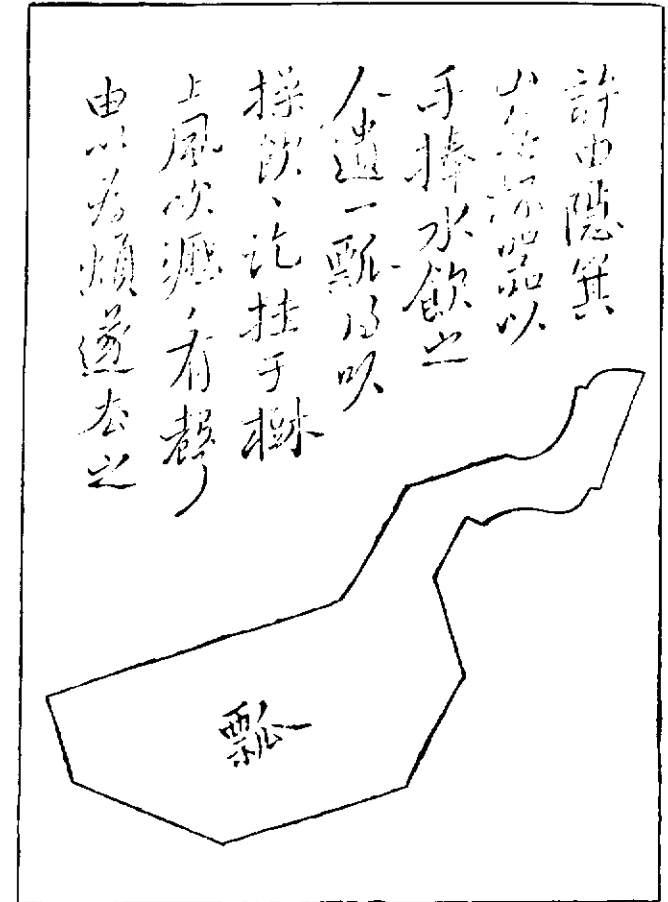 許由隱箕
山無杯器以
手捧水飲之
人遺一瓢得以
操飲、訖挂于樹
上風吹瀝、有聲
由以為煩遂去之
瓢